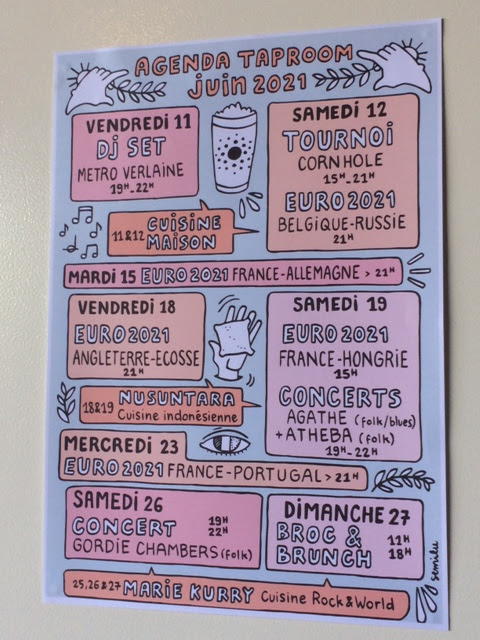 AGENDA TAPROOM
juin 2021
VENDREDI 11
DJ SET
METRO VERLAINE
19H_22H
SAMEDI 12
TOURNOI
CORNHOLE
15H_21H
EURO 2021
BELGIQUE-RUSSIE
21H
11&12 CUISINE
MAISON
MARDI 15 EURO 2021 FRANCE-ALLEMAGNE > 21H
VENDREDI 18
EURO 2021
ANGLETERRE-ECOSSE
21H
SAMEDI 19
EURO 2021
FRANCE-HONGRIE
15H
CONCERTS
AGATHE (folk/blues)
+ ATHEBA (folk)
19H_22H
18&19 NUSUNTARA
Cuisine indonésienne
MERCREDI 23
EURO 2021 FRANCE-PORTUGAL > 21H
SAMEDI 26
CONCERT 19H
22H
GORDIE CHAMBERS (folk)
DIMANCHE 27
BROC & 11H
BRUNCH 18H
25,26&27 MARIE KURRY Cuisine Rock&World
semilu